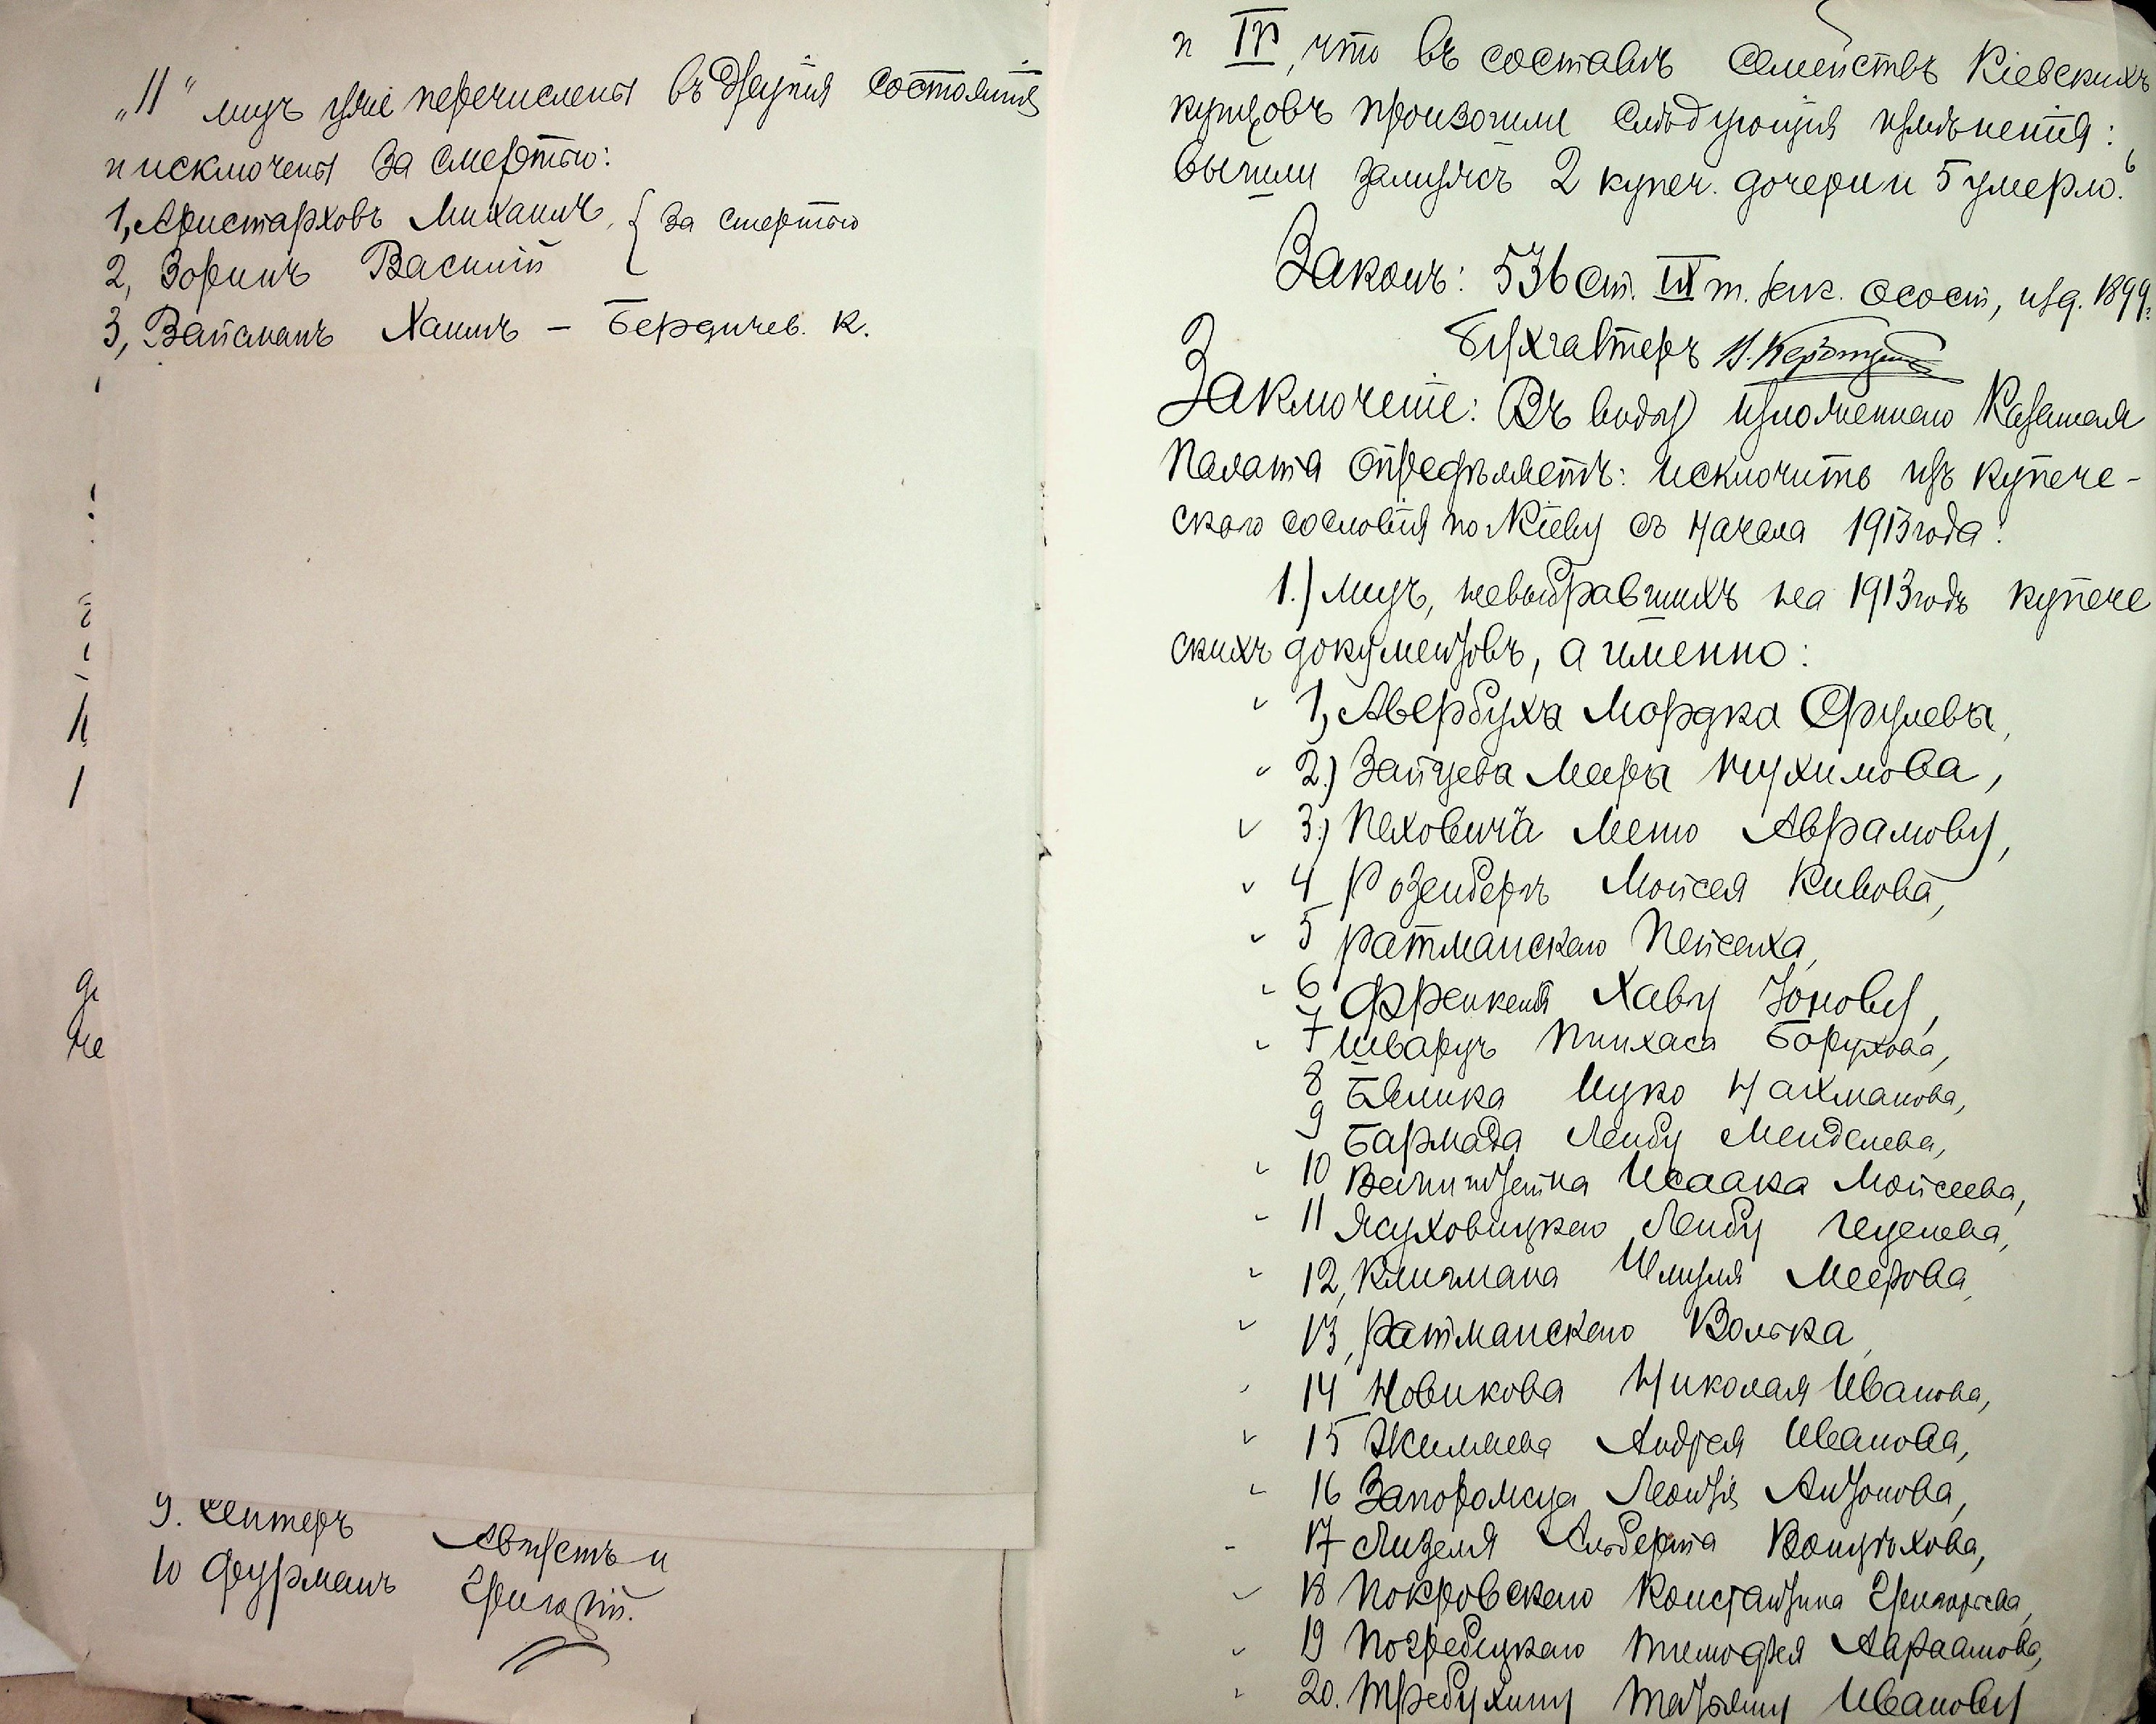 „11“ лицъ уже перечислены въ другія состоянія
и исключены за смертью:
1, Аристарховъ Михаилъ, { за смертью
2, Зоринъ Василій
3, Вайсманъ Хаимъ – Бердичев. к.
9. Августъ и
10 Фурманъ Григорій.
и IV, что въ составѣ семействъ Кіевскихъ
купцовъ произошли слѣдующія измѣненія:
вышли замужъ 2 купеч. дочери и 5 умерло.
Законъ: 536 ст. IX т. зак. о сост, изд. 1899
Бухгалтеръ
Заключеніе: Въ виду изложеннаго Казенная
Палата опредѣляетъ: исключить изъ купече-
скаго сословія по Кіеву съ начала 1913 года:
1.) лицъ, невыбравшихъ на 1913 годъ купече
скихъ документовъ, а именно:
1, Авербуха Мордка Срулева,
2.) Зайцева Меера
3.) Паховича Авраамову,
4 Розенберъ Мойсея Кивова,
5 Ратманскаго Пейсаха,
6 Френкеля Хаву Іонову,
7 Шварцъ Пинхаса Борухова,
8 Бялика Ицко Нахманова,
9 Бармада Лейбу Менделева,
10 Вайнштейна Исаака Мойсеева,
11 Ясуховицкаго Лейбу Гецелева,
12, Клигмана Шмуля Меерова,
13, Ратманскаго Волька,
14 Новикова Николая Иванова,
15 Андрея Иванова,
16 Запорожца Леонтія Антонова,
17 Лизеля Альберта
18 Покровскаго Константина Григорьева,
19 Погребицкаго Тимофея
20. Требухину Татьяну Иванову